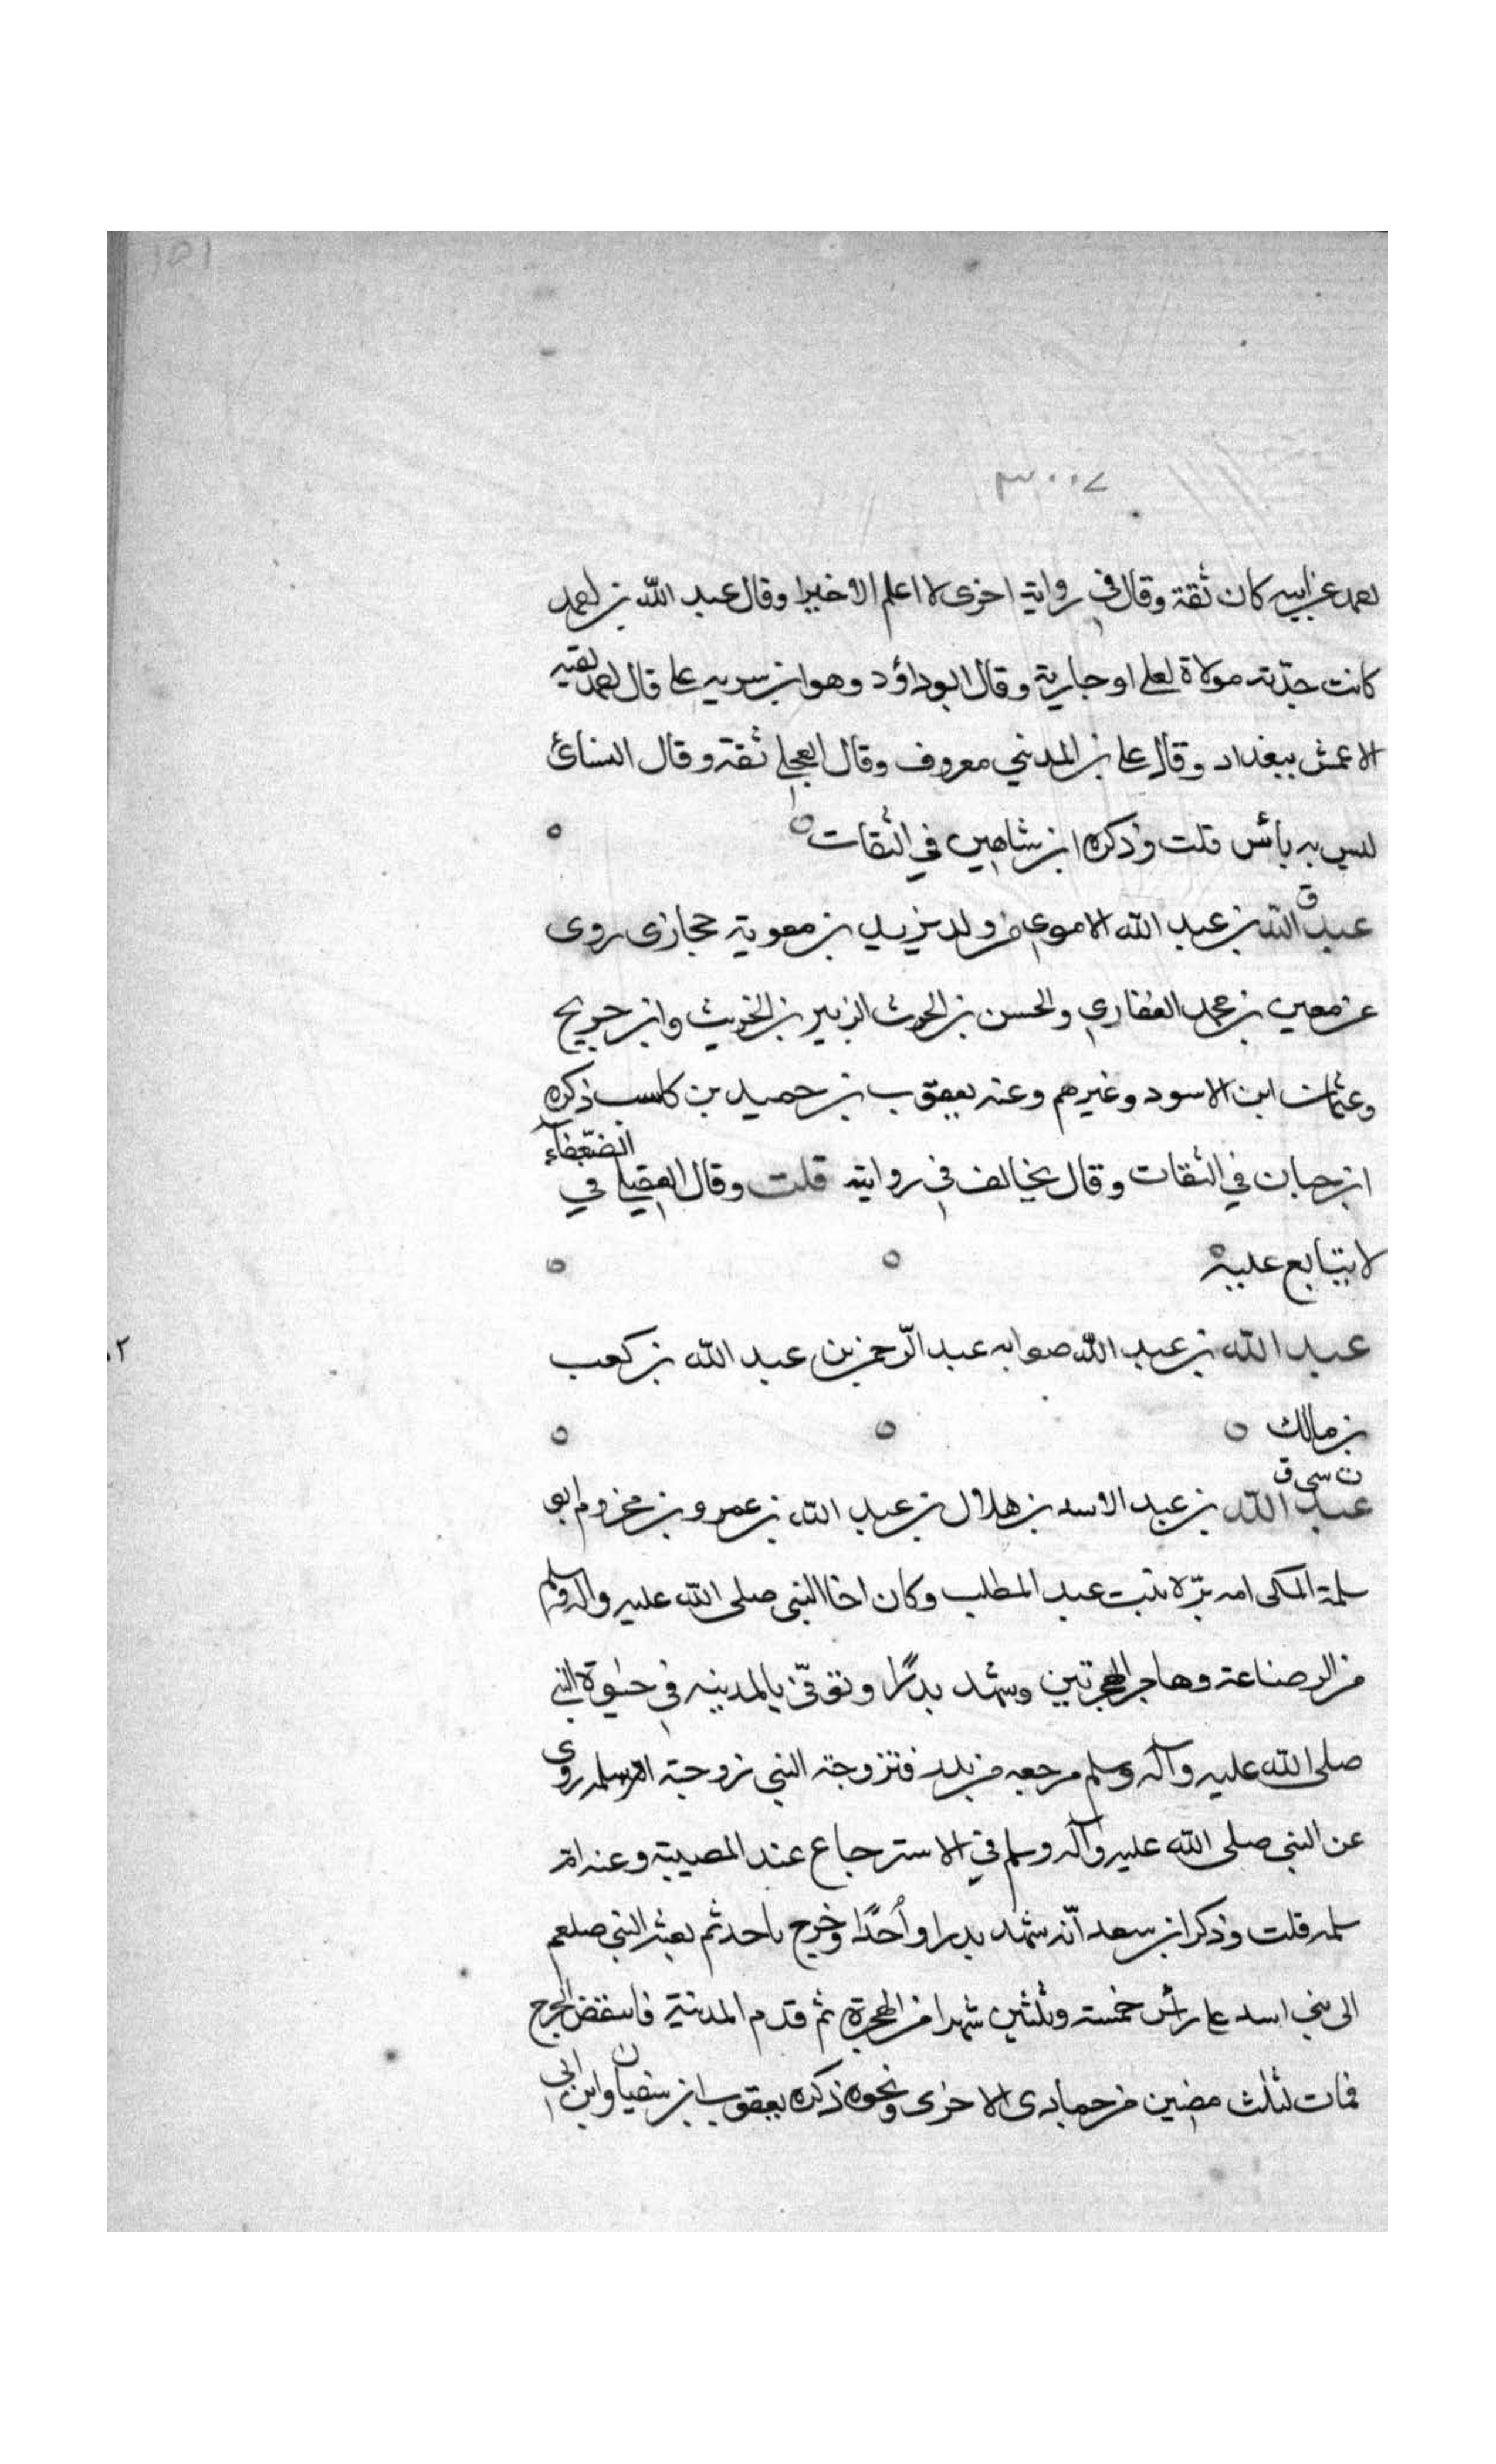 ١٥١
٣٠٠٧
احمد عن ابيه كان ثقة وقال في رواية اخرى لا اعلم الا خيرا وقال عبد الله بن احمد
كانت جدّته مولاة لعلي او جارية وقال ابو داؤد وهو ابن سريه علي قال احمد لقيه
الاعمش ببغداد وقال علي بن المديني معروف وقال العجلي ثقة وقال النسائ
ليس به بأس قلت وذكره ابن شاهين في الثقات
ق
عبد الله بن عبد الله الاموي من ولد يزيد بن معوية حجازى روى
عن معين بن محمد الغفاري والحسن بن الحرث الزبير بن الخريت وابن جريج
وعثمان ابن الاسود وغيرهم وعنه يعقوب بن حميد بن كاسب ذكره
ابن حبان في الثقات وقال يخالف في روايته قلت وقال العقيلي في الضعفآء
لا يتابع عليه
عبد الله بن عبد الله صوابه عبد الرّحمن بن عبد الله بن كعب
٢
بن مالك
ت سى ق
عبد الله بن عبد الاسد بن هلال بن عبد الله بن عمرو بن مخزوم ابو
سلمة المكى امه برّة بنت عبد المطلب وكان اخا النبى صلى الله عليه وآله وسلم
من الرضاعة وهاجر الهجرتين وشهد بدرًا وتوفّى بالمدينه في حيوة النبي
صلى الله عليه وآله وسلم مرجعه من بدر فتزوجة النبي زوجته ام سلمه روى
عن النبى صلى الله عليه وآله وسلم في الاسترجاع عند المصيبة وعنه ام
سلمه قلت وذكر ابن سعد انّه شهد بدرا وأحدًا وخرج باحد ثم بعثه النبي صلعم
الى بني اسد على رأس خمسة وثلثين شهرا من الهجرة ثم قدم المدنية فانتقض الجرح
فمات لثلث مضين من جمادى الاخرى ونحوه ذكره يعقوب ابن سفيان وابن ابى